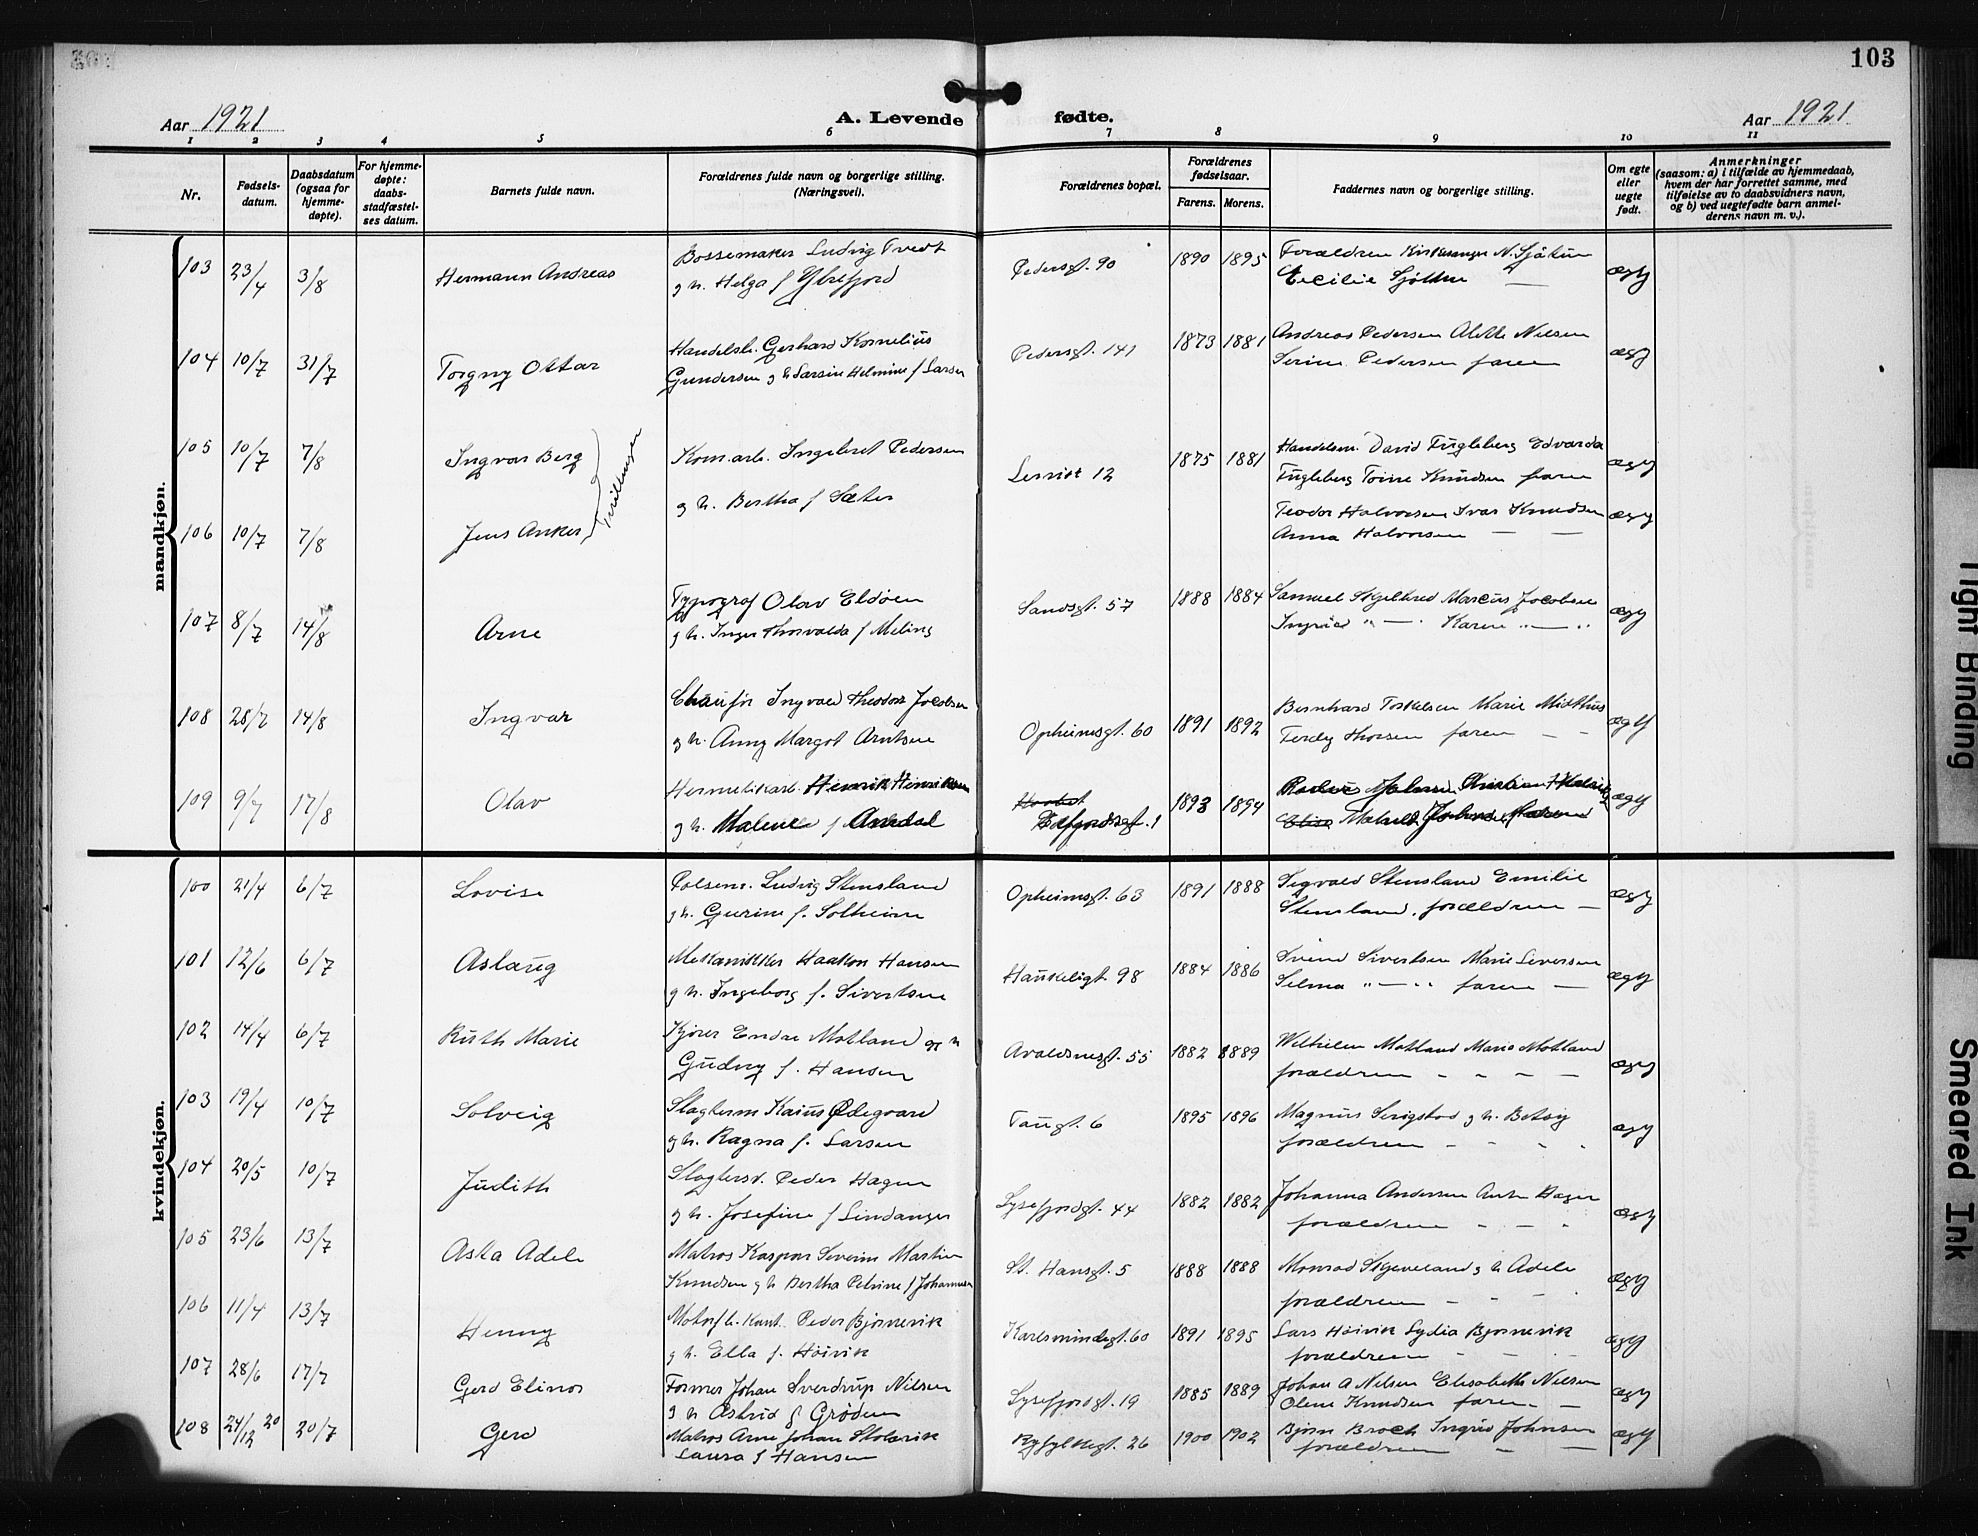 103
Aar 1921
A. Levende
fødte.
Aar 1921
1 2 3 4 5 6 7 8 9 10 11
Nr.
Fødsels-
datum.
Daabsdatum
(ogsaa for
hjemme-
døpte).
For hjemme-
døpte:
daabs-
stadfæstel-
ses datum.
Barnets fulde navn.
Forældrenes fulde navn og borgerlige stilling.
(Næringsvei).
Forældrenes bopæl.
Forældrenes
fødselsaar.
Farens. Morens.
Faddernes navn og borgerlige stilling.
Om egte
eller
uegte
født.
Anmerkninger
(saasom: a) i tilfælde av hjemmedaab,
hvem der har forrettet samme, med
tilføielse av to daabsvidners navn,
og b) ved uegtefødte barn anmel-
derens navn m. v.).
mandkjøn.
103 23/4 3/8 Hermann Andreas
Bossemaker Ludvig Tvedt
g h. Helga f
Pedersgt. 90 1890 1895
Forældren Kirkesanger N. Sjøtun
Cecilie —
ægt
104 10/7 31/7 Torgny Ottar
Handelsb. Gerhard Kornelius
Gundersen g h Larsine Helmine f Larsen
Pedersgt. 141 1873 1881
Andreas Pedersen Alette Nilsen
Serine Pedersen faren
ægt
105 10/7 7/8 Ingvar Berg
Tvillinger
Kom.arb. Ingebret Pedersen
g h. Bertha f Sæter
12 1875 1881
Handelsm. David Fugleberg Edvarda
Fugleberg Toine Knudsen faren
ægt
106 10/7 7/8 Jens Anker
Teodor Halvorsen Ivar Knudsen
Anna Halvorsen — —
ægt
107 8/7 14/8 Arne
Typograf Olav Eldøen
g h. Inger Thorvalda f Meling
Sandsgt. 57 1888 1884
Samuel Skjelbred Marcus Jacobsen
Ingrid " — " Karen " — "
ægt
108 28/2 14/8 Ingvar
Chaufør Ingvald Theodor Jacobsen
g h. Anny Margot Arntsen
Opheimsgt. 60 1891 1892
Bernhard Torkelsen Marie Misthus
Ferdy Thorsen faren — —
ægt
109 9/7 17/8 Olav
Hermetikarb. Henrik Henriksen
g h. Malene f Årdal
Eidfjordsgt. 1 1893 1894
ægt
kvindekjøn.
100 21/4 6/7 Lovise
Pølsem. Ludvig Stensland
g h. Gurine f. Solheim
Opheimsgt. 63 1891 1888
Sigvald Stensland Emilie
Stensland, forældren —
ægt
101 12/6 6/7 Aslaug
Mekanikker Haakon Hansen
g h. Ingeborg f. Sivertsen
Haukeligt. 98 1884 1886
Svend Sivertsen Marie Seversen
Selma " — " faren —
ægt
102 14/4 6/7 Ruth Marie
Kjører Endre Motland og h
Gudny f. Hansen
Avaldsnesgt. 55 1882 1889
Wilhelm Motland Marie Motland
forældren - - - —
ægt
103 19/4 10/7 Solveig
Slagterm Kaius Ødegaard
g h. Ragna f. Larsen
Taugt. 6 1895 1896
Magnus Serigstad g h. Betsy
forældren - - -
ægt
104 20/5 10/7 Judith
Slagtersv. Peder Hagen
g h. Josefine f Lindanger
Lysefjordgt. 44 1882 1882
Johanna Andersen Hagen
forældren - — -
ægt
105 23/6 13/7 Asta Adele
Matros Kaspar Severin Martin
Knudsen g h Bertha Petrine f Johannesen
St. Hansgt. 5 1888 1888
Monrad Skjeveland g h Adele
forældren - - -
ægt
106 11/4 13/7 Henny
Peder Bjørnevik
g h. Ella f. Høivik
Karlsmindegt. 60 1891 1895
Lars Høivik Lydia Bjørnevik
forældren - - -
ægt
107 28/6 17/7 Gerd Elinor
Former Johan Sverdrup Nilsen
g h Astrid f Grødem
Lysefjordgt. 19 1885 1889
Johan A Nilsen Elisabeth Nilsen
Olene Knudsen faren. - —
ægt
108 24/12 20 20/7 Gerd
Matros Arne Johan Stolavik
Laura f Hansen
Ryfylkegt. 26 1900 1902
Bjørn Broch Ingrid Johnsen
forældren — —
ægt
Tight Binding
Smeared Ink